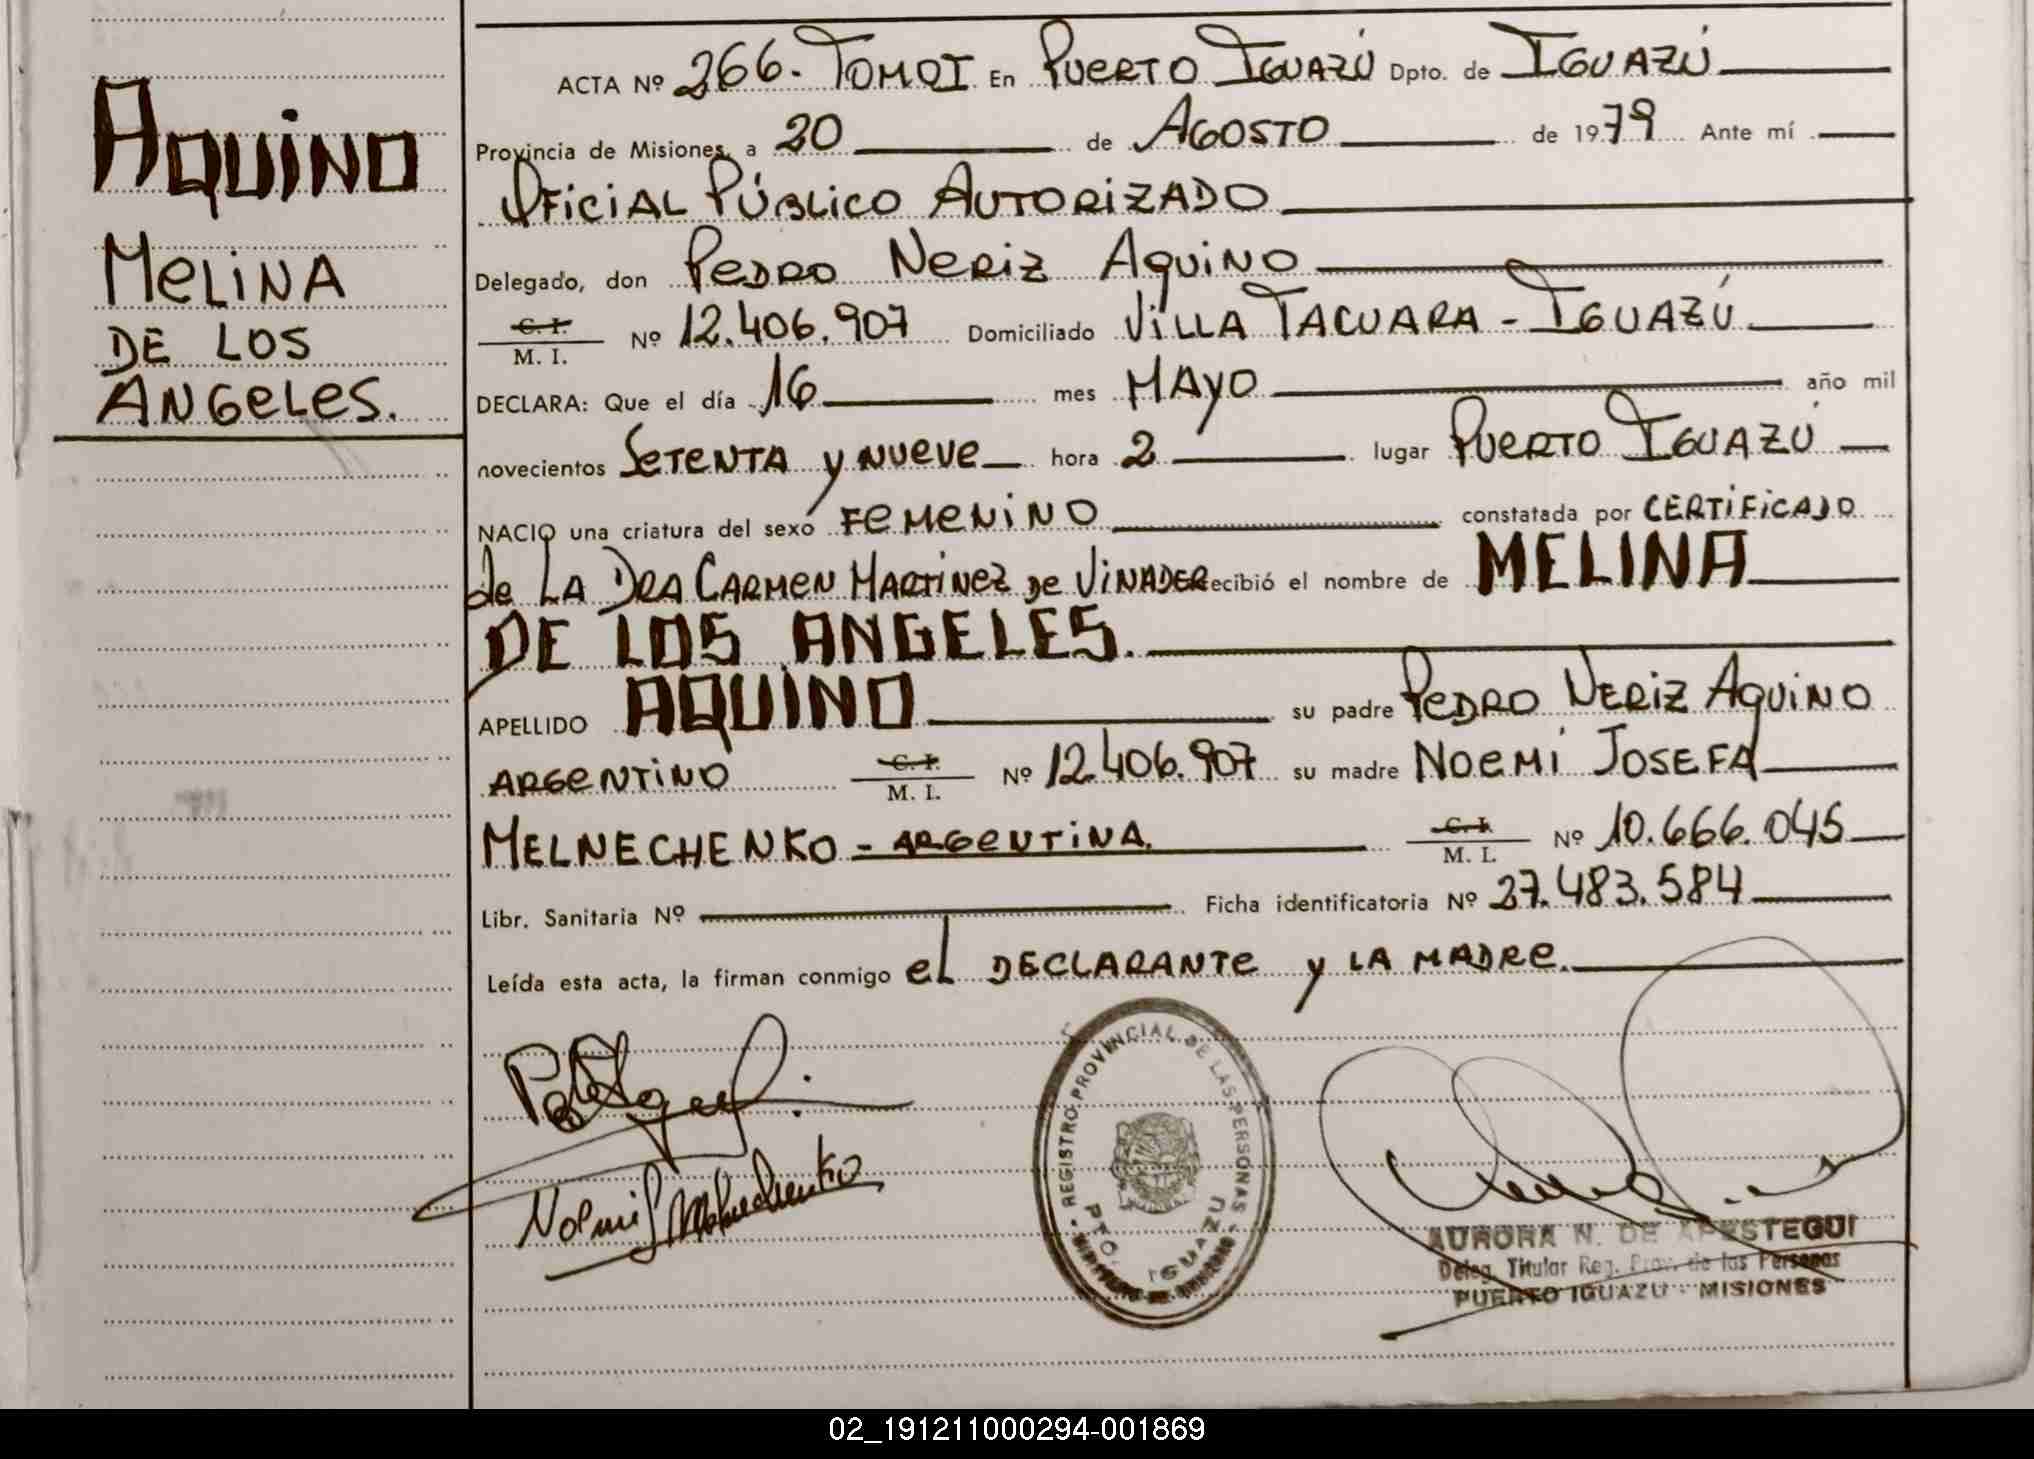 AQUINO
MELINA
DE LOS
ANGELES.
ACTA Nº 266. TOMO I En PUERTO IGUAZÚ Dpto. de IGUAZÚ
Provincia de Misiones, a 20 de AGOSTO de 1979 Ante mí
OFICIAL PÚBLICO AUTORIZADO
Delegado, don PEDRO NERIZ AQUINO
C. I.
M. I. Nº 12.406.907 Domiciliado VILLA TACUARA - IGUAZÚ
DECLARA: Que el día 16 mes MAYO año mil
novecientos SETENTA y NUEVE hora 2 lugar PUERTO IGUAZÚ
NACIO una criatura del sexo FEMENINO constatada por CERTIFICADO
de LA DRA CARMEN MARTINEZ DE VINADER recibió el nombre de MELINA
DE LOS ANGELES.
APELLIDO AQUINO su padre PEDRO NERIZ AQUINO
ARGENTINO C. I. M. I. Nº 12.406.907 su madre NOEMI JOSEFA
MELNECHENKO - ARGENTINA. C. I. M. I. Nº 10.666.045
Libr. Sanitaria Nº Ficha identificatoria Nº 27.483.584
Leída esta acta, la firman conmigo el DECLARANTE y LA MADRE.
REGISTRO PROVINCIAL DE LAS PERSONAS
PTO. IGUAZU
Noemi J Melnechenko
AURORA N. DE APESTEGUI
Deleg. Titular Reg. Prov. de las Personas
PUERTO IGUAZU - MISIONES
02_191211000294-001869